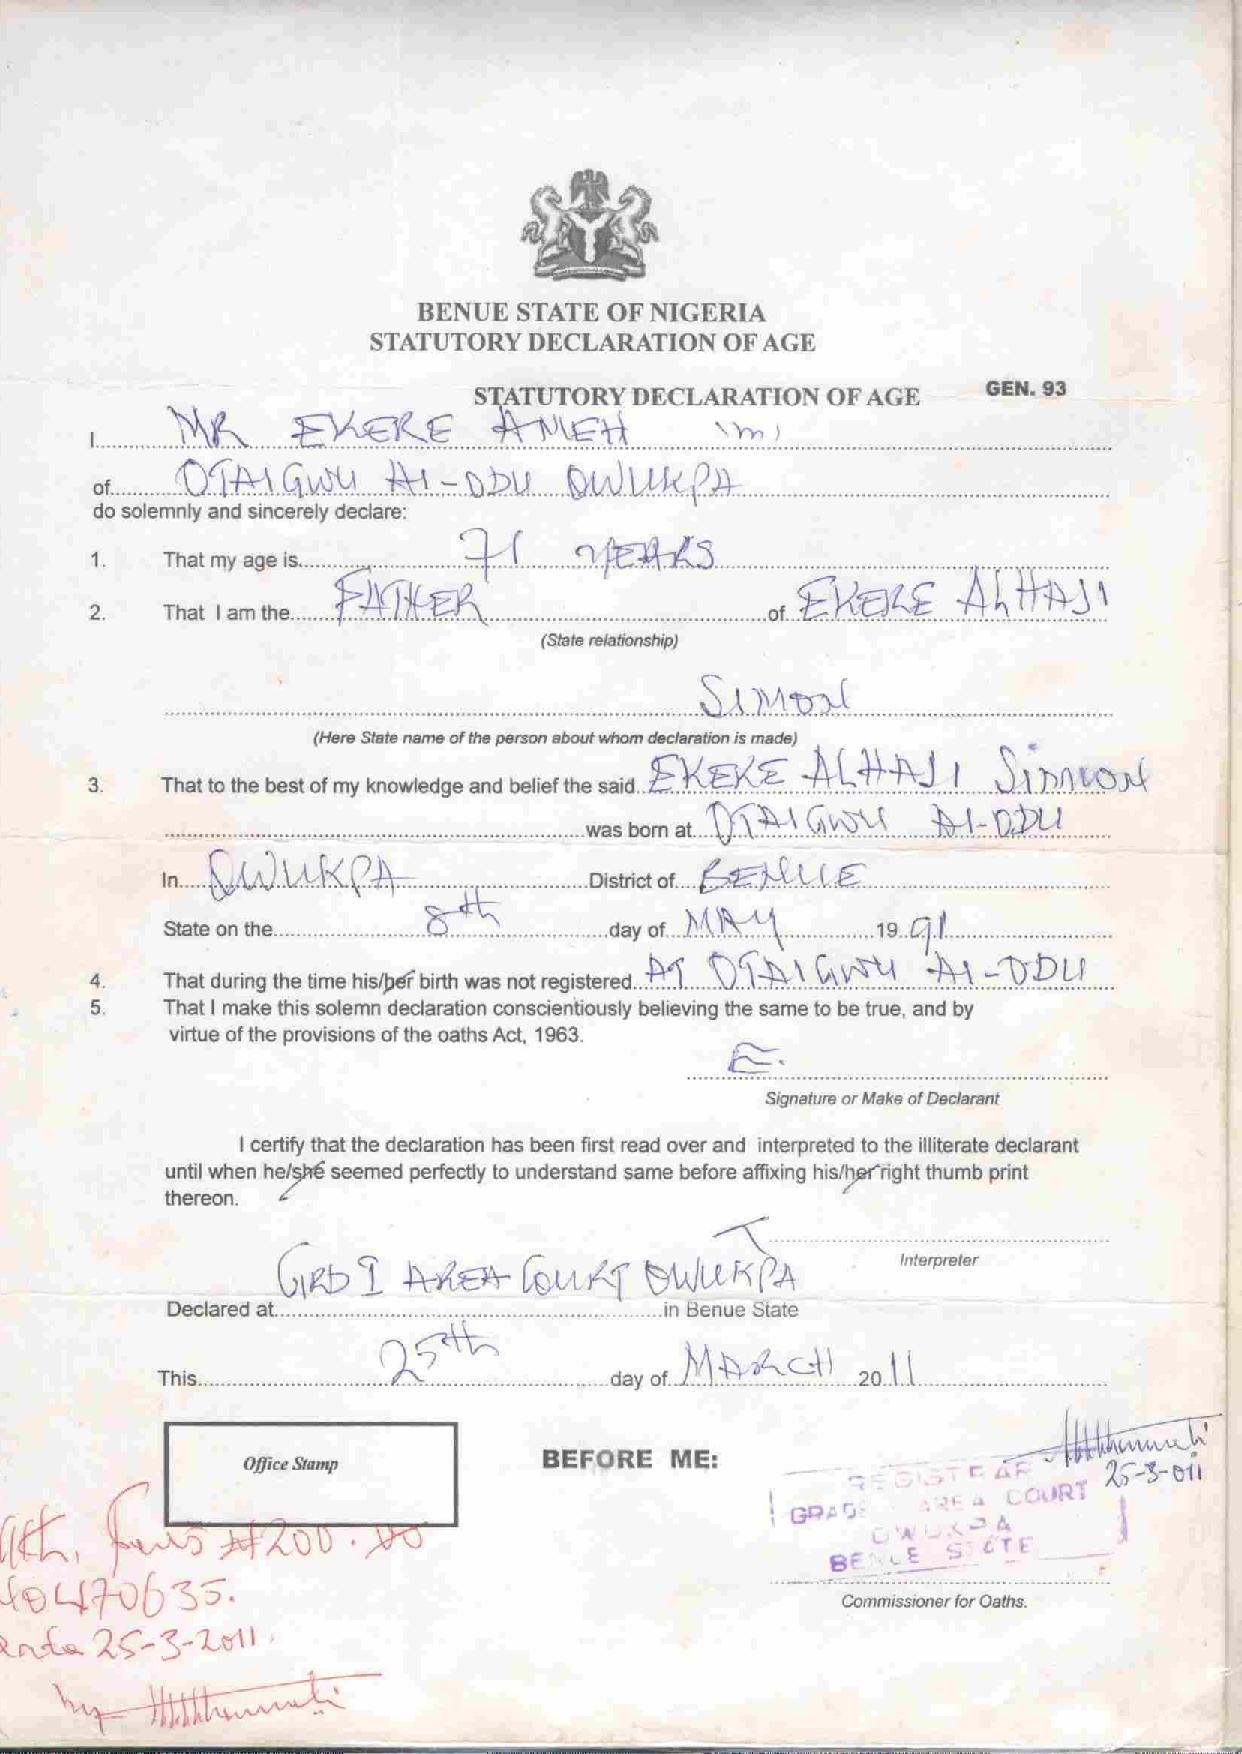 BENUE STATE OF NIGERIA
STATUTORY DECLARATION OF AGE
STATUTORY DECLARATION OF AGE GEN. 93
I MR EKERE AMEH (m)
of OTAIGWU AI-ODU OWUKPA
do solemnly and sincerely declare:
1. That my age is 71 YEARS
2. That I am the FATHER of EKERE ALHAJI
(State relationship)
SIMON
(Here State name of the person about whom declaration is made)
3. That to the best of my knowledge and belief the said EKEKE ALHAJI SIMMON
was born at OTAIGWU AI-ODU
In OWUKPA District of BENUE
State on the 8th day of MAY 1991
4. That during the time his/her birth was not registered AT OTAIGWU AI-ODU
5. That I make this solemn declaration conscientiously believing the same to be true, and by
virtue of the provisions of the oaths Act, 1963.
E.
Signature or Make of Declarant
I certify that the declaration has been first read over and interpreted to the illiterate declarant
until when he/she seemed perfectly to understand same before affixing his/her right thumb print
thereon.
Interpreter
GRD I AREA COURT OWUKPA
Declared at in Benue State
This 25th day of MARCH 2011
Office Stamp BEFORE ME:
25-3-011
REGISTRAR
GRADE AREA COURT
OWUKPA
BENUE STATE
Commissioner for Oaths.
#200.00
470635.
25-3-2011.
by